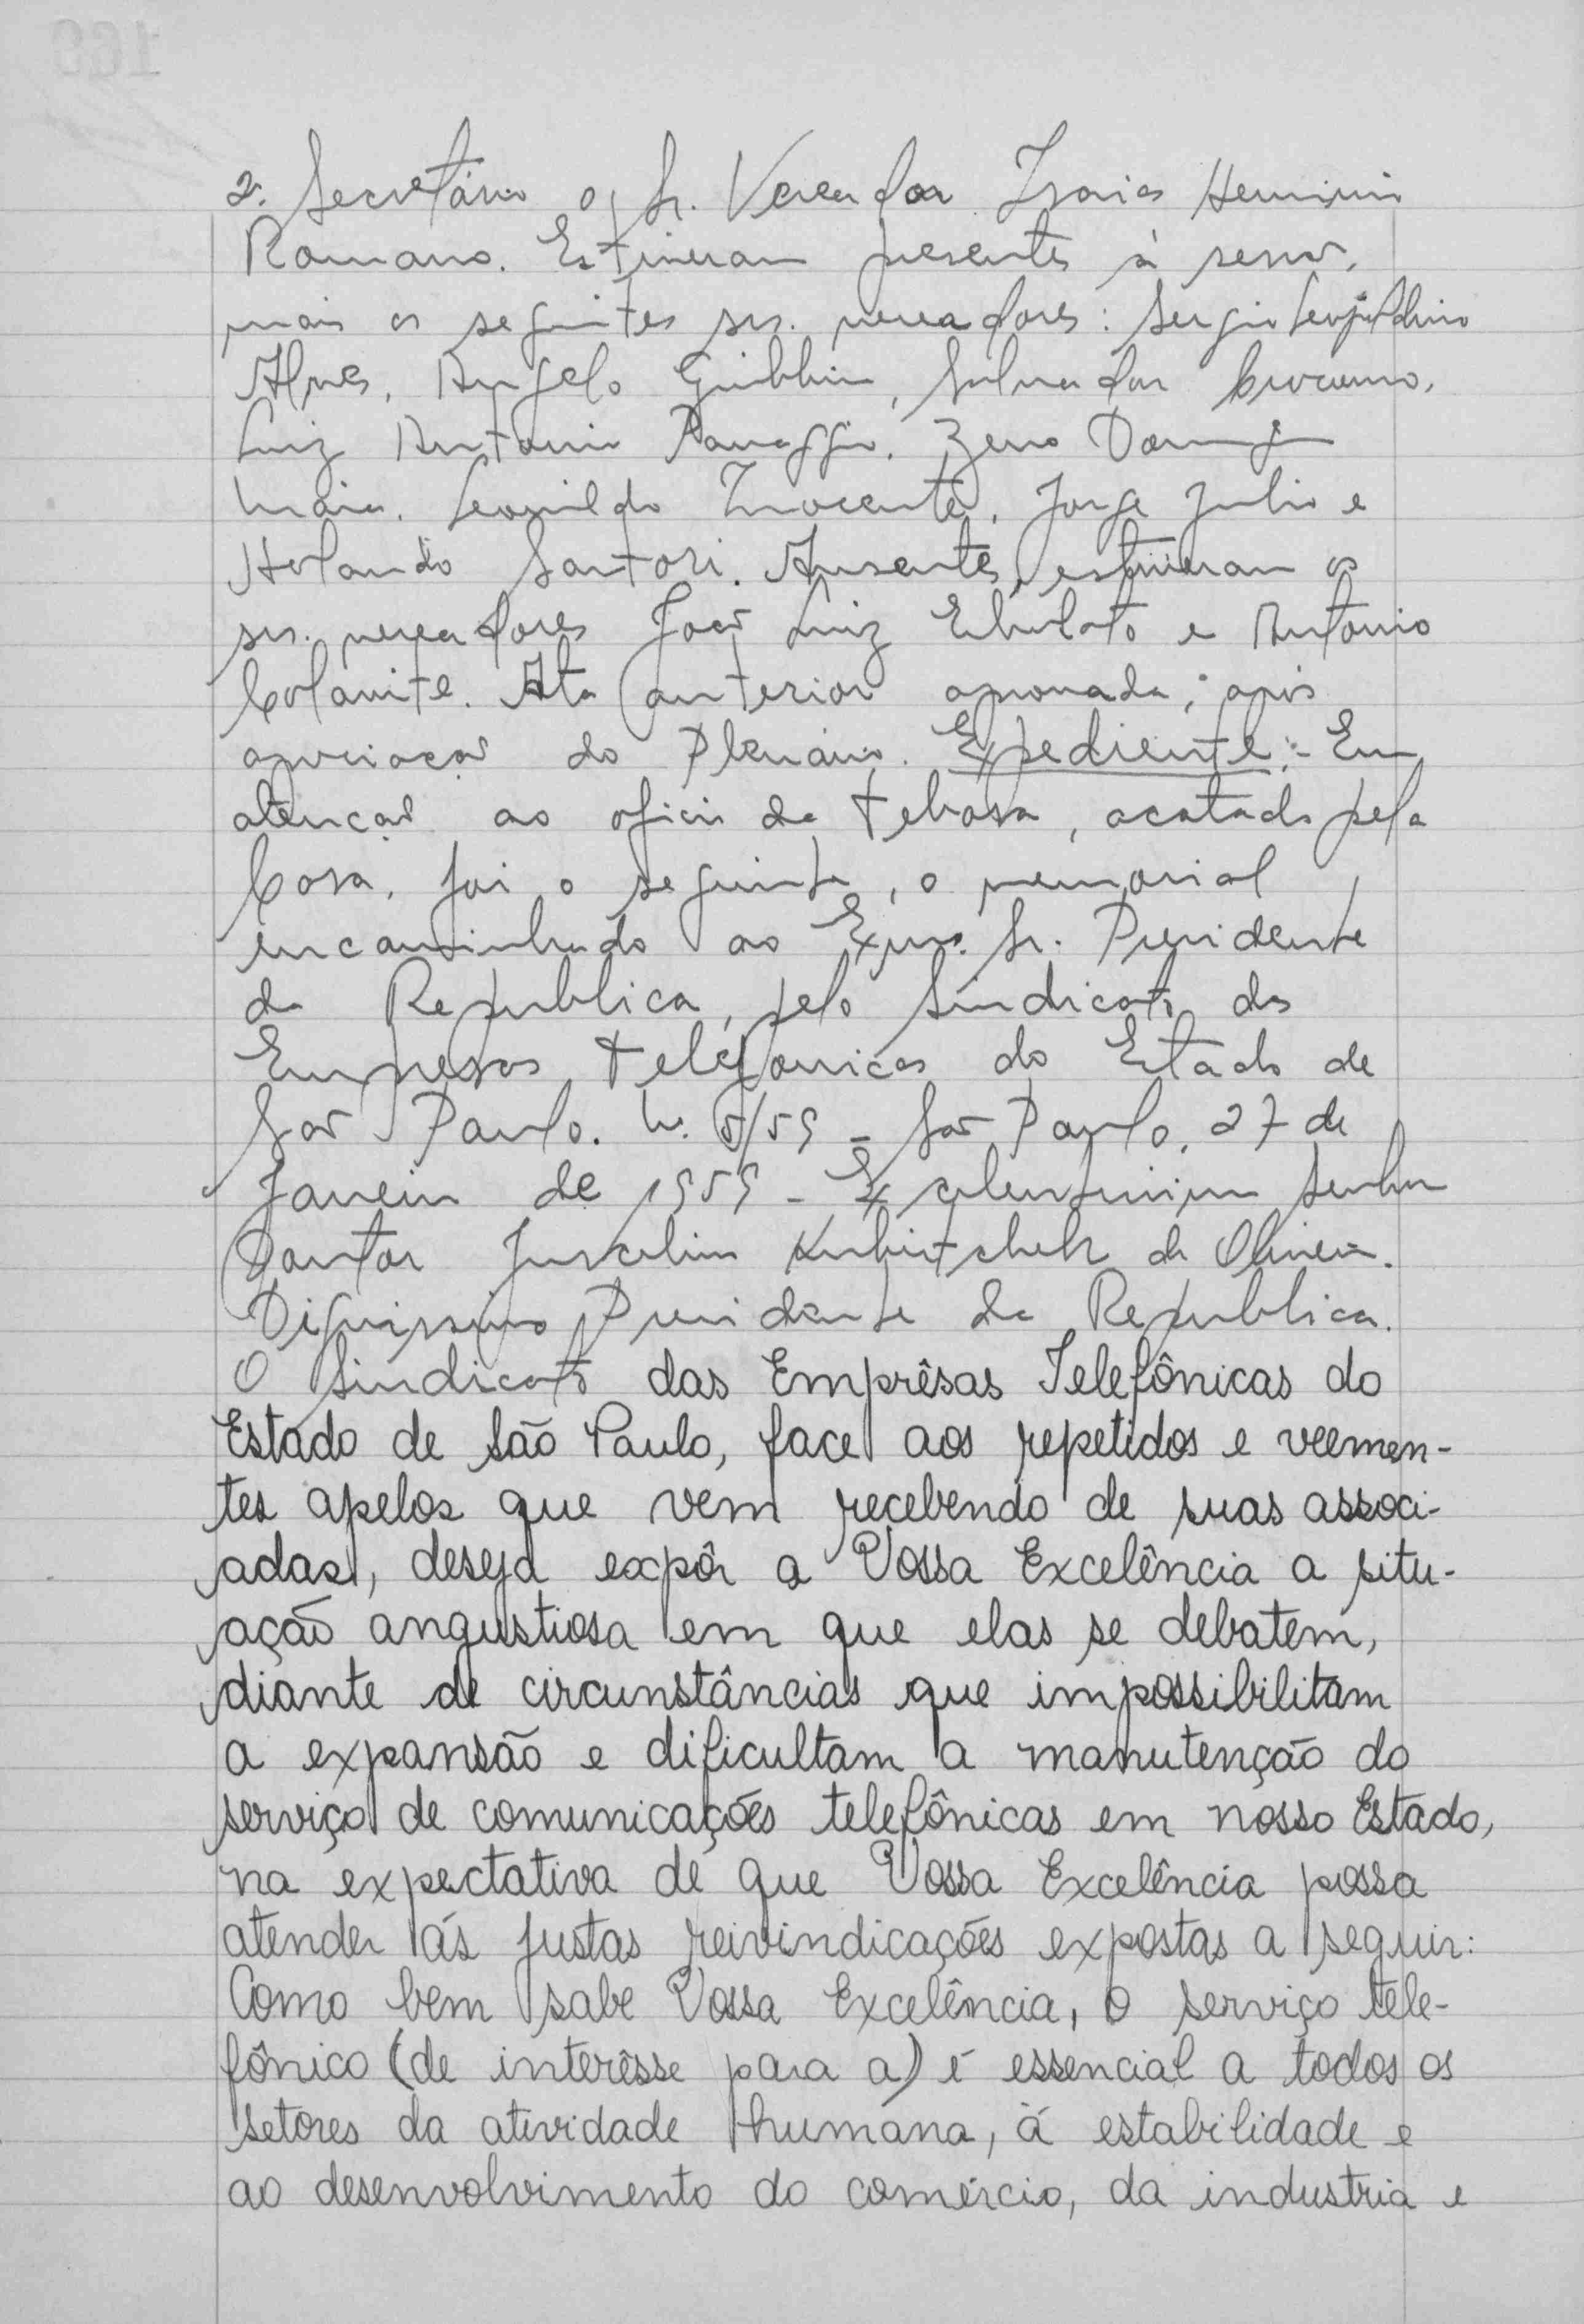 2º Secretário o Sr. Vereador Isaias Herminio
Romano. Estiveram presentes à sessão,
mais os seguintes srs. vereadores: Sergio Leopoldino
Alves, Angelo Guibbin, Salvador
Luiz Antonio Zeno Domingos
Maia, Leonildo Inocente, Jorge Julio e
Holando Sartori. Ausentes, estiveram os
srs. vereadores João Luiz e Antonio
Colavite. Ata anterior aprovada, após
apreciação do Plenário. Expediente:- Em
atenção ao oficio da Tebasa, acatado pela
Casa, foi o seguinte, o memorial
encaminhado ao Exmo. Sr. Presidente
da Republica, pelo Sindicato das
Empresas Telefonicas do Estado de
São Paulo. N. 5/59 - São Paulo, 27 de
Janeiro de 1959 - Excelentissimo Senhor
Doutor Juscelino Kubitschek de Oliveira.
Dignissimo Presidente da Republica.
O Sindicato das Emprêsas Telefônicas do
Estado de São Paulo, face aos repetidos e veemen-
tes apelos que vem recebendo de suas associ-
adas, deseja expôr a Vossa Excelência a situ-
ação angustiosa em que elas se debatem,
diante de circunstâncias que impossibilitam
a expansão e dificultam a manutenção do
serviço de comunicações telefônicas em nosso Estado,
na expectativa de que Vossa Excelência possa
atender ás justas reivindicações expostas a seguir:
Como bem sabe Vossa Excelência, o serviço tele-
fônico (de interêsse para a) é essencial a todos os
setores da atividade humana, á estabilidade e
ao desenvolvimento do comércio, da industria e